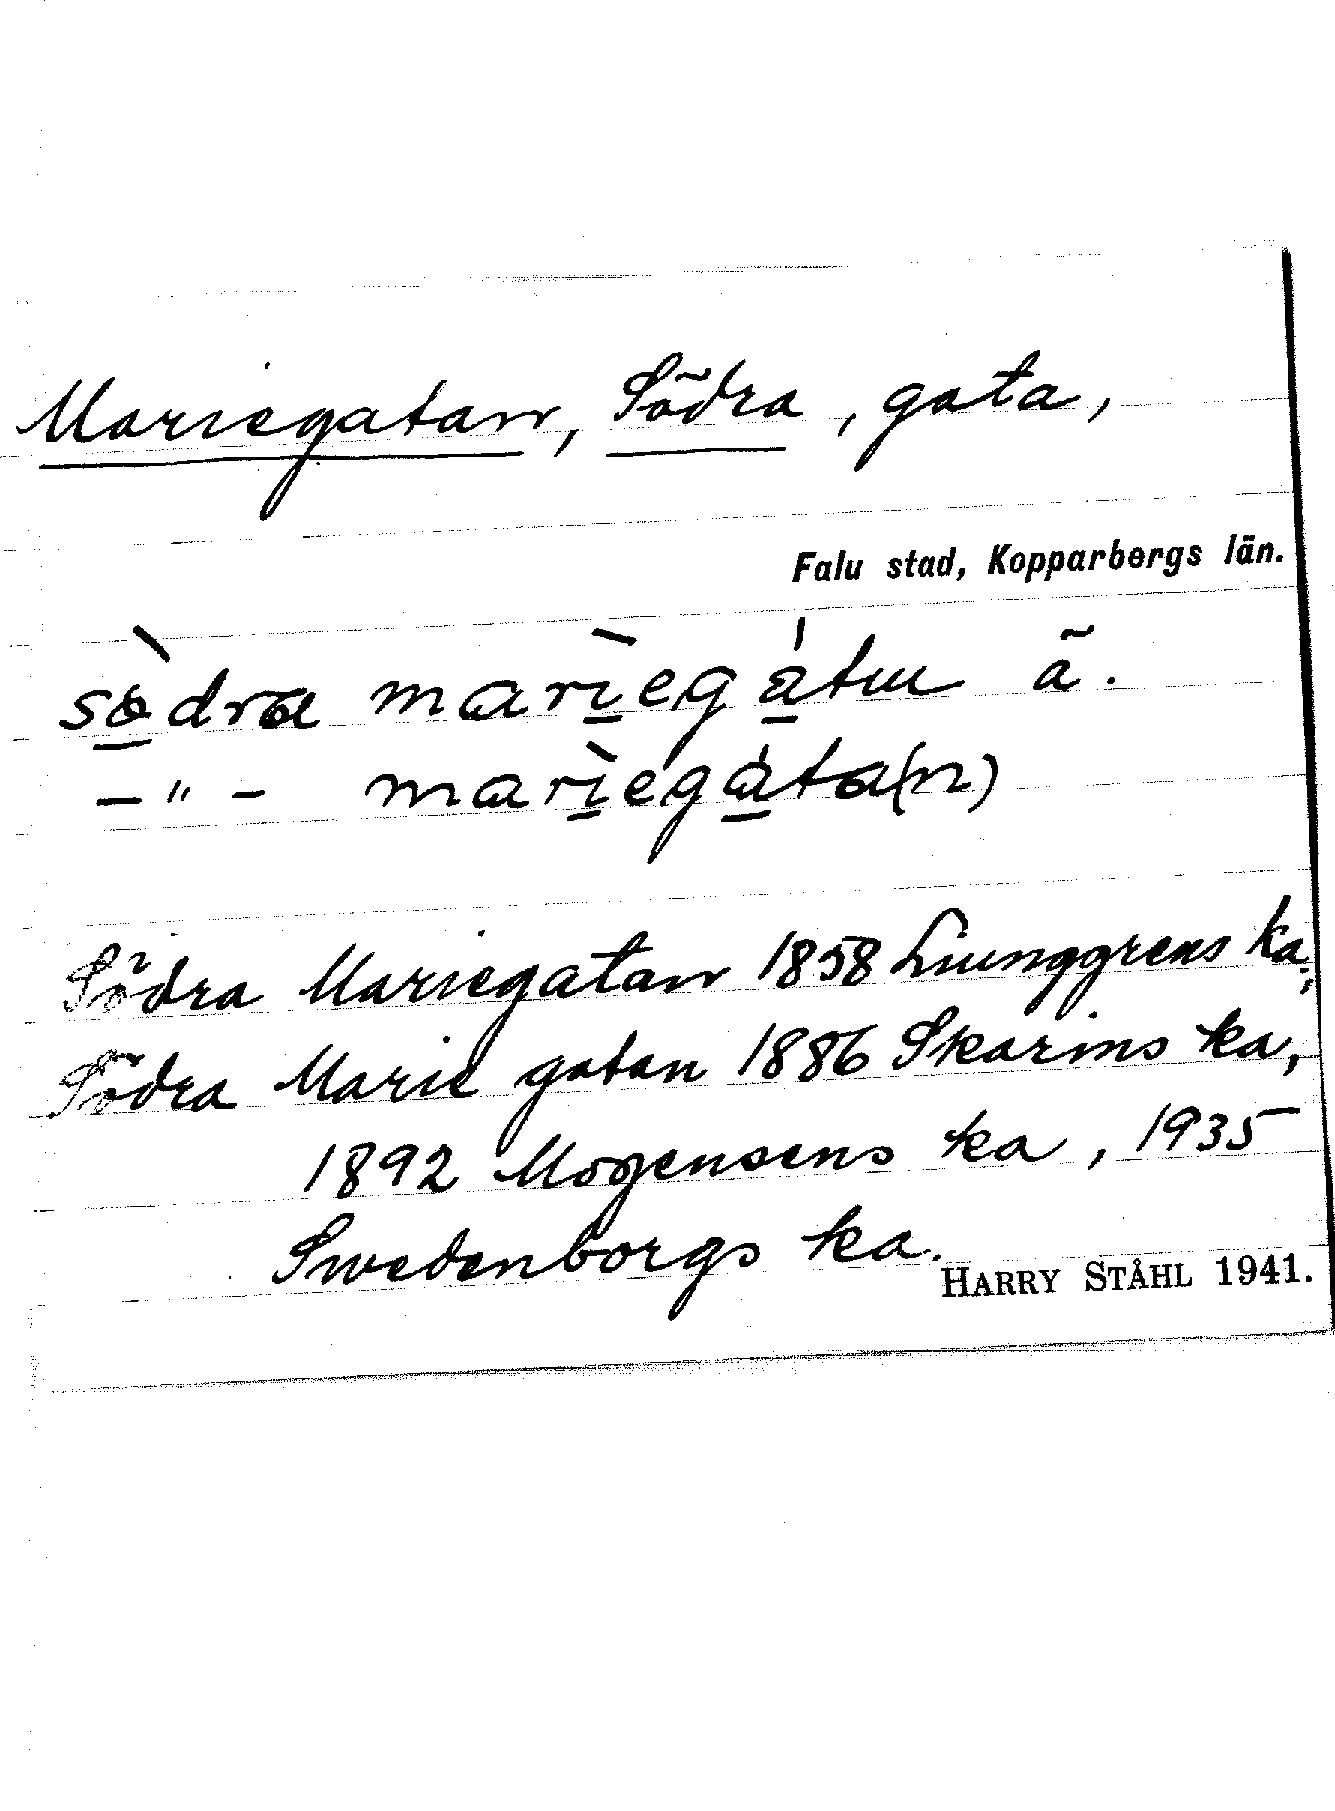 Mariegatan, Södra, gata,
Falu stad, Kopparbergs län.
sò̱dra marì̱egá̱tɯ ã.
–"– marì̱egá̱ta(n)
Södra Mariegatan 1858 Ljunggrens ka,;
Södra Marie gatan 1886 Skarins ka,
1892 Mogensens ka, 1935
Swedenborgs ka.
HARRY STÅHL 1941.